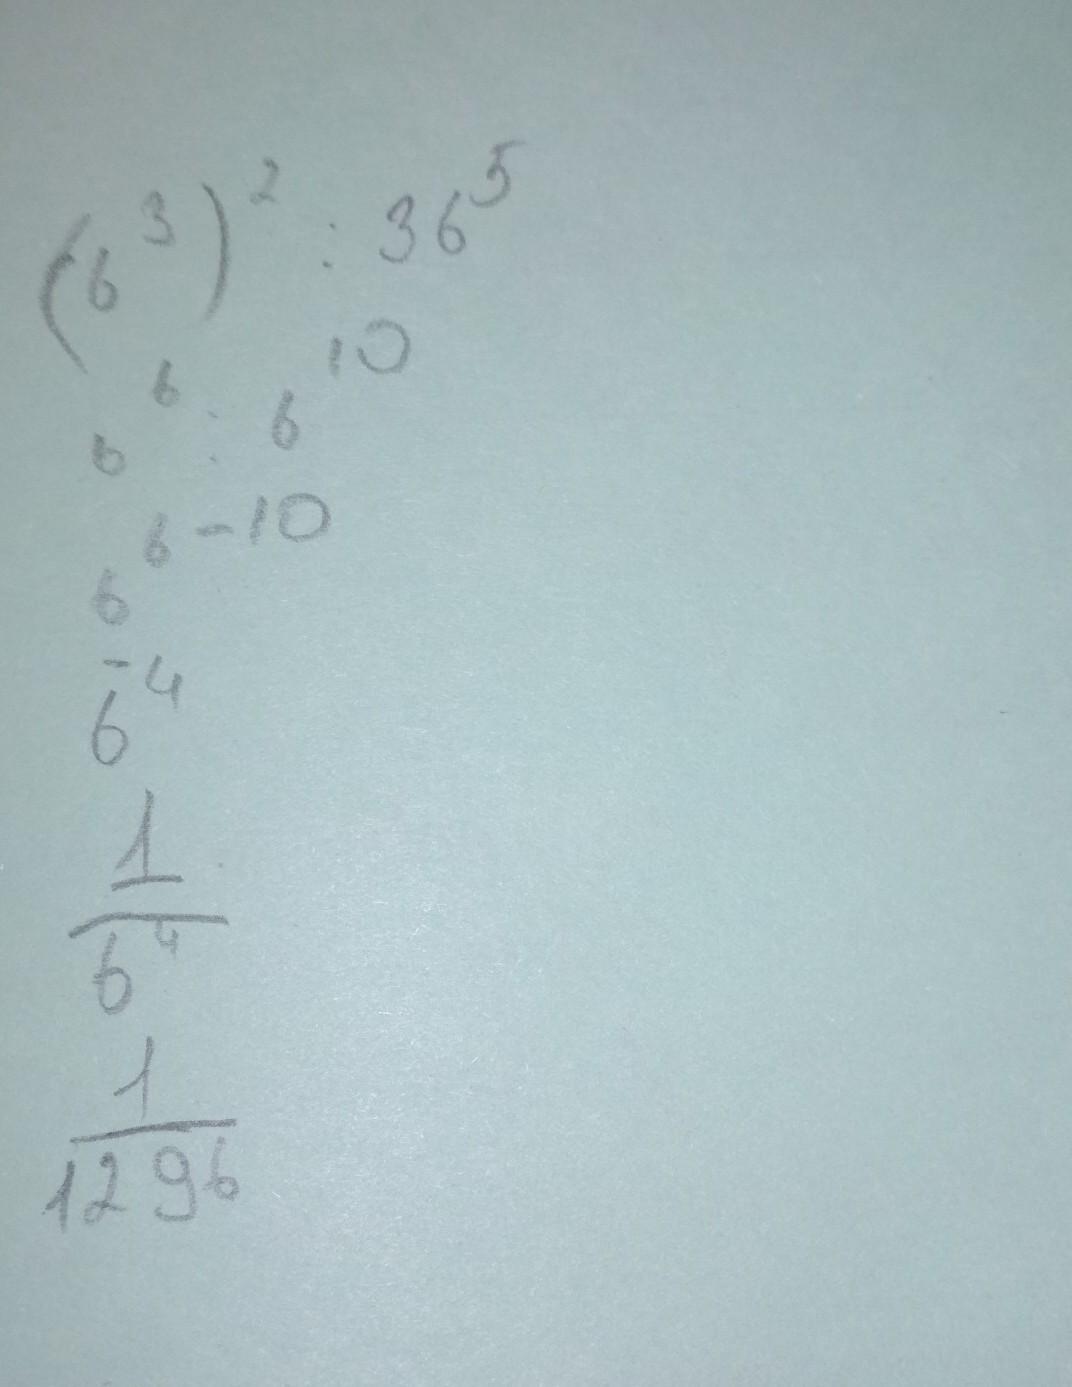 (6^3)^2 : 36^5
6^6 : 6^10
6^6-10
6^-4
1/6^4
1/1296